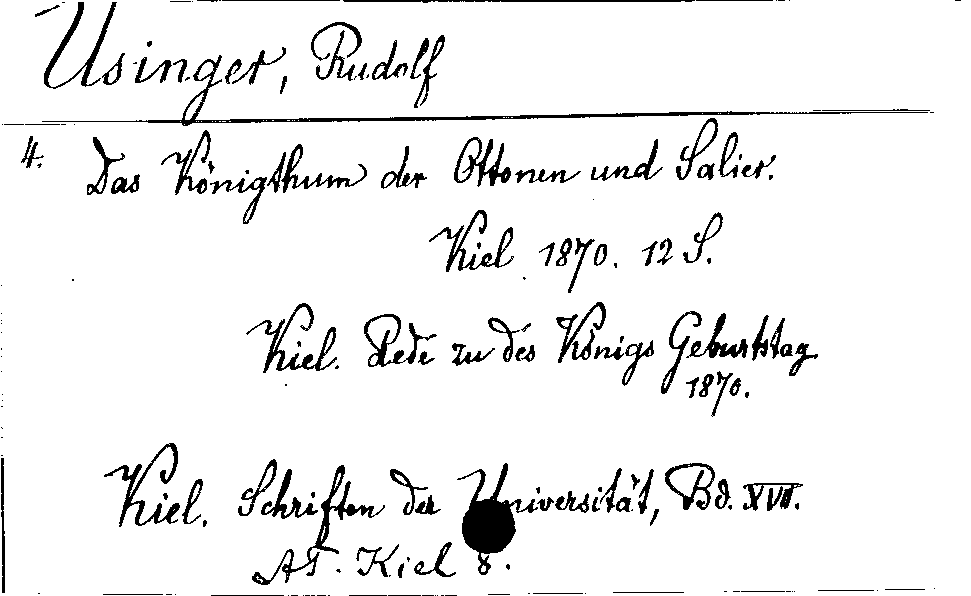 Usinger, Rudolf
4. Das Königthum der Ottonen und Salier.
Kiel 1870. 12 S.
Kiel. Rede zu des Königs Geburtstag
1870.
Kiel. Schriften der Universität, Bd. XVII.
AF. Kiel 8.